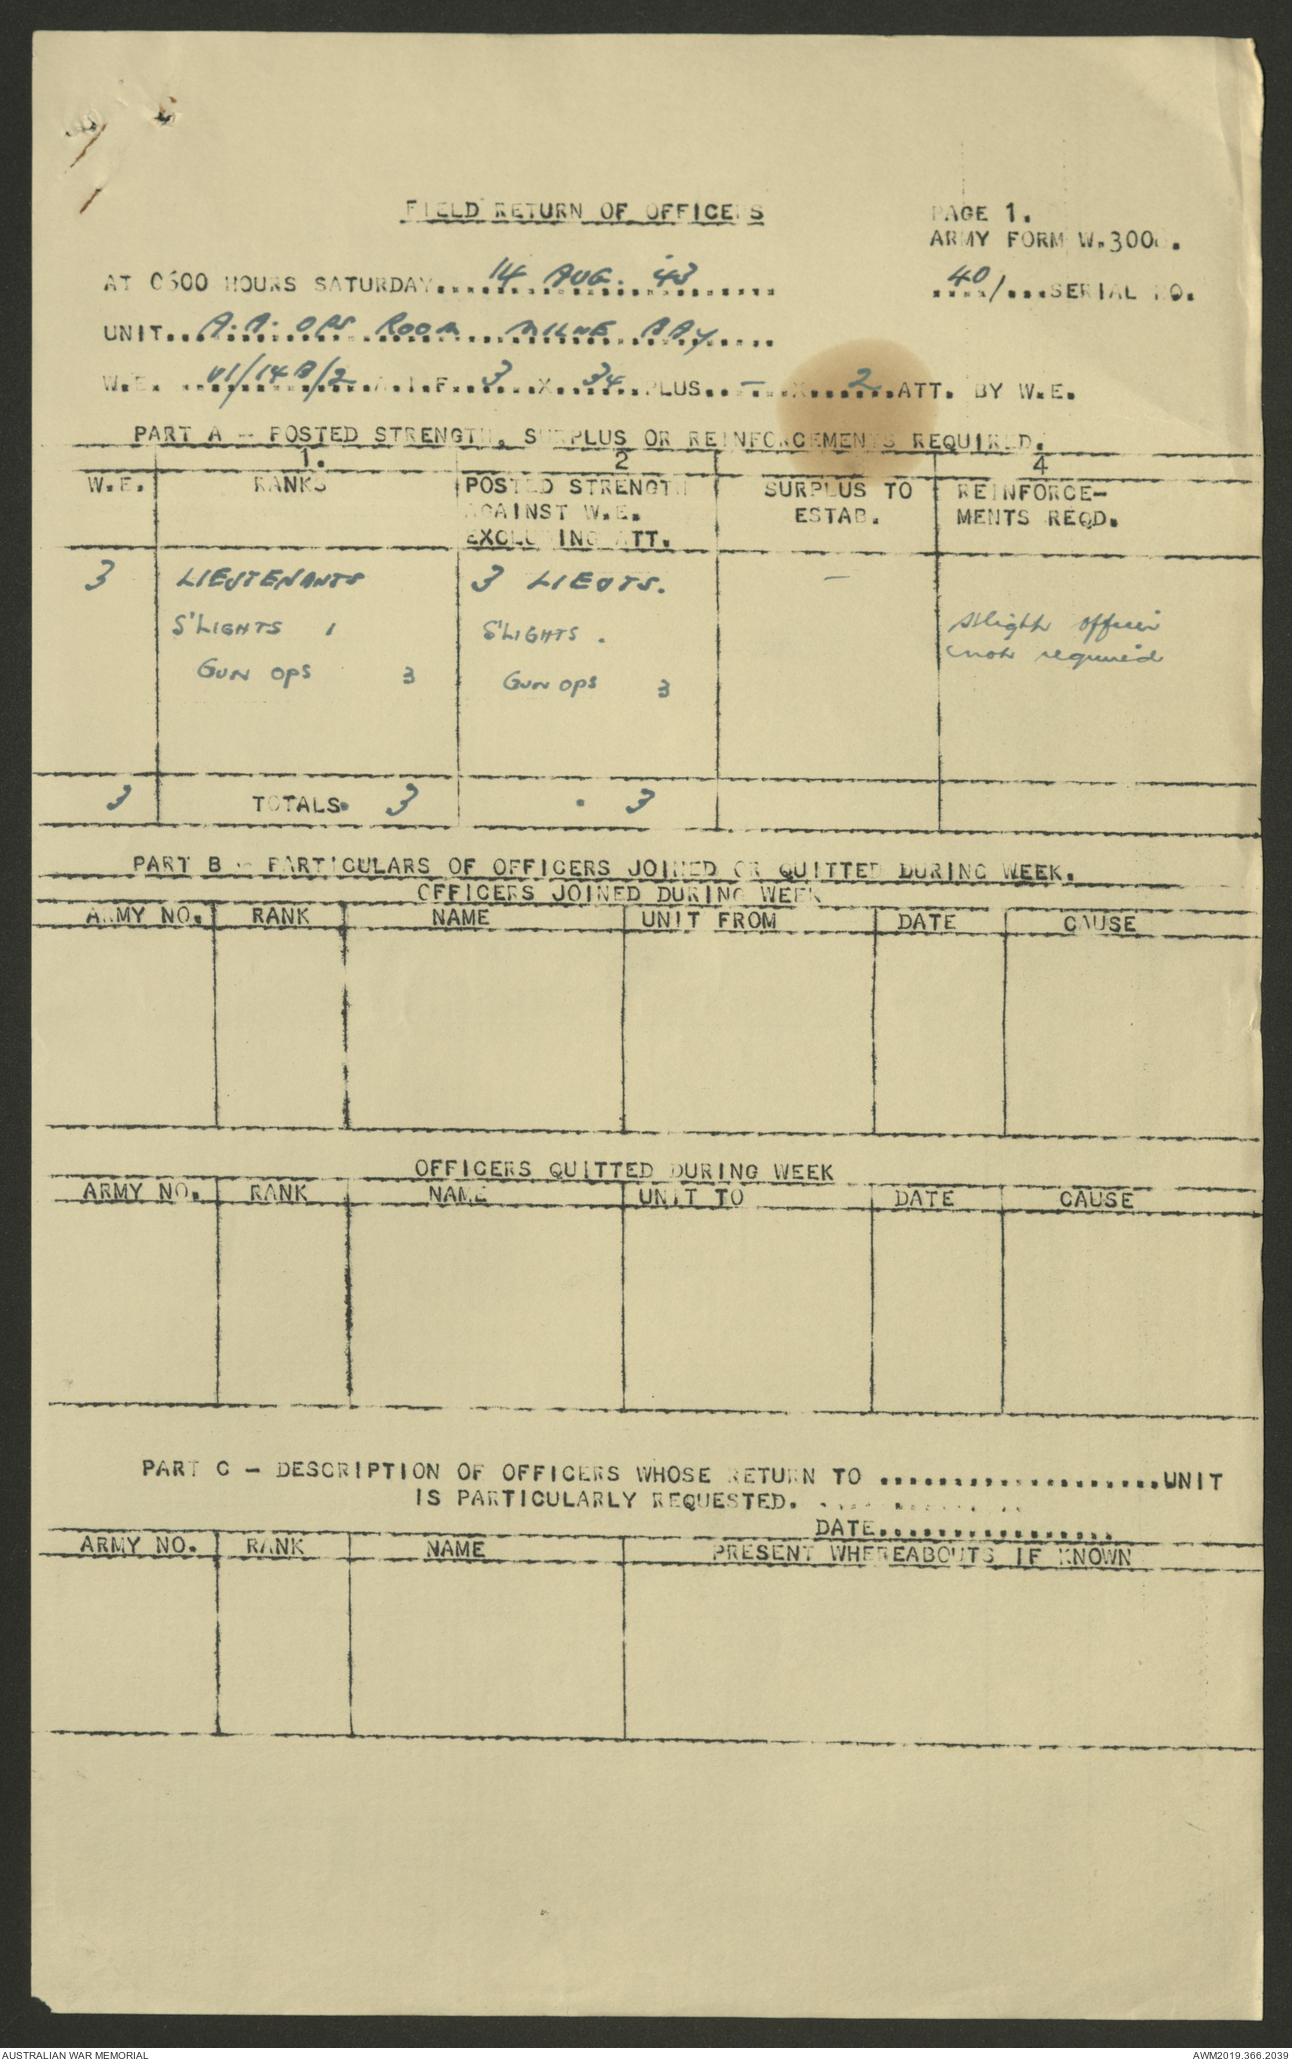 FIELD RETURN OF OFFICERS
PAGE 1.
ARMY FORM W.3008.
AT 0600 HOURS SATURDAY....14 AUG. 43....
40/...SERIAL NO.
UNIT..A.A. OPS ROOM MILNE BAY....
W.E. ..VI/14B/2..A.I.F..3...X..34..PLUS..-..X...2..ATT. BY W.E.
PART A - POSTED STRENGTH, SURPLUS OR REINFORCEMENTS REQUIRED.
1. 2 4
W.E. RANKS POSTED STRENGTH SURPLUS TO REINFORCE-
AGAINST W.E. ESTAB. MENTS REQD.
EXCLUDING ATT.
3 LIEUTENANTS 3 LIEUTS. -
S'LIGHTS 1 S'LIGHTS . Slight officer
Gun ops 3 Gun ops 3 not required
3 TOTALS. 3 . 3
PART B - PARTICULARS OF OFFICERS JOINED OR QUITTED DURING WEEK.
OFFICERS JOINED DURING WEEK
ARMY NO. RANK NAME UNIT FROM DATE CAUSE
OFFICERS QUITTED DURING WEEK
ARMY NO. RANK NAME UNIT TO DATE CAUSE
PART C - DESCRIPTION OF OFFICERS WHOSE RETURN TO ...................UNIT
IS PARTICULARLY REQUESTED. ..............
DATE.................
ARMY NO. RANK NAME PRESENT WHEREABOUTS IF KNOWN
AUSTRALIAN WAR MEMORIAL
AWM2019.366.2039